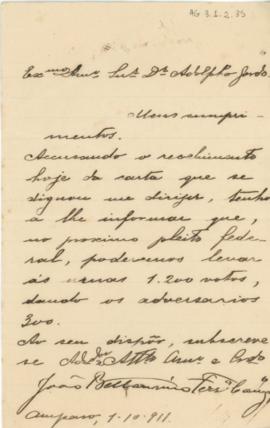 AG 3.1.2.35
Exmo Amo Snr. Dr. Adolpho Gordo.
Meus cumpri-
mentos.
Accusando o recebimento
hoje da carta que se
dignou me dirijir, tenho
a lhe informar que,
no proximo pleito fede-
ral, podemos levar
ás urnas 1.200 votos,
dando os adversarios
300.
Ao seu dispôr, subscreve
se Admor Atto Amo e Crdo
João Belisario
Amparo, 1-10-911.